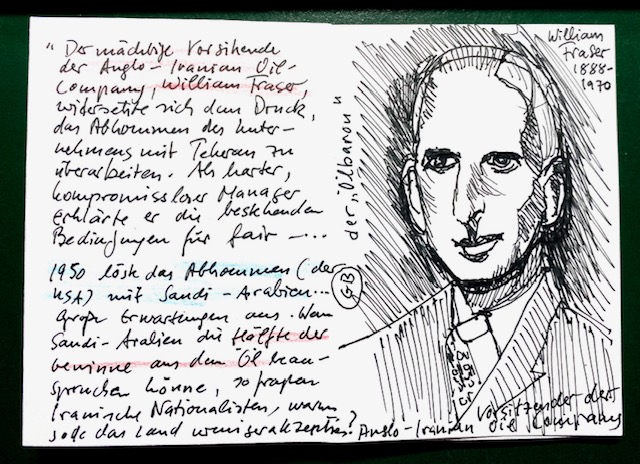 "Der mächtige Vorsitzende
der Anglo-Iranian Oil-
Company, William Fraser,
widersetzte sich dem Druck,
das Abkommen des Unter-
nehmens mit Teheran zu
überarbeiten. Als harter,
kompromissloser Manager
erklärte er die bestehenden
Bedingungen für fair –...
1950 löste das Abkommen (der
USA) mit Saudi-Arabien...
große Erwartungen aus. Wenn
Saudi-Arabien die Hälfte der
Gewinne aus dem Öl bean-
spruchen könne, so fragten
Iranische Nationalisten, warum
solle das Land weniger akzeptieren?
der "Ölbaron"
GB
William
Fraser
1888-
1970
Vorsitzender der
Anglo-Iranian Oil Company